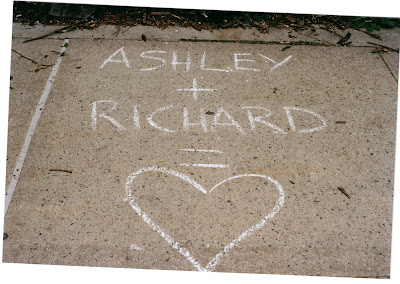 ASHLEY
+
RICHARD
=